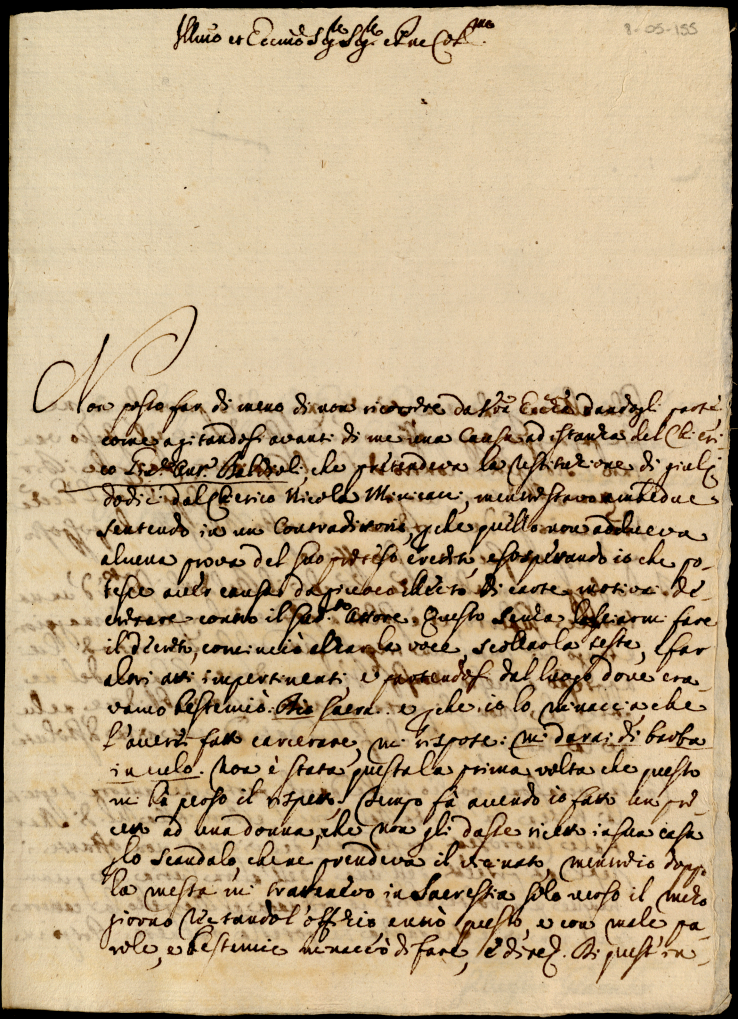 8-05-155
Illmo et Eccmo Sigre Sigre e Pne Colmo
Non posso far di meno di non ricorrere da Vra Eccza dandogli parte
come agitandosi avanti di me una Causa ad istanza del Chieri-
co che pretendeva la restituzione di giulij
dodici dal Clerico Nicola Minicucci, mentre stavamo ambedue
sentendo in un Contraditorio, perche quello non adduceva
alcuna prova del suo preteso credito, e sospettando io che po-
tesse aver causa da giuoco illecito di carte motivai de-
cretare contro il sudto Attore. Questo senza lasciarmi fare
il decreto, cominciò alzar la voce, scollar la testa, e far
altri atti impertinenti e partendosi dal luogo dove era-
vamo bestemiò: e perche io lo minacciai che
l'averei fatto carcerare, mi rispose: mi darai di barba
in culo. Non è stata questa la prima volta che questo
mi hà perso il rispetto. Tempo fà avendo io fatto un pre-
cetto ad una donna, che non gli dasse ricetto in sua casa
per lo scandalo, che ne prendeva il vicinato, mentre io doppo
la messa mi trattenevo in Sacrestia solo verso il mezzo
giorno recitando l'offizio entrò questo, e con male pa-
role, e bestemie minacciò di fare, e dire. Di quest' in-